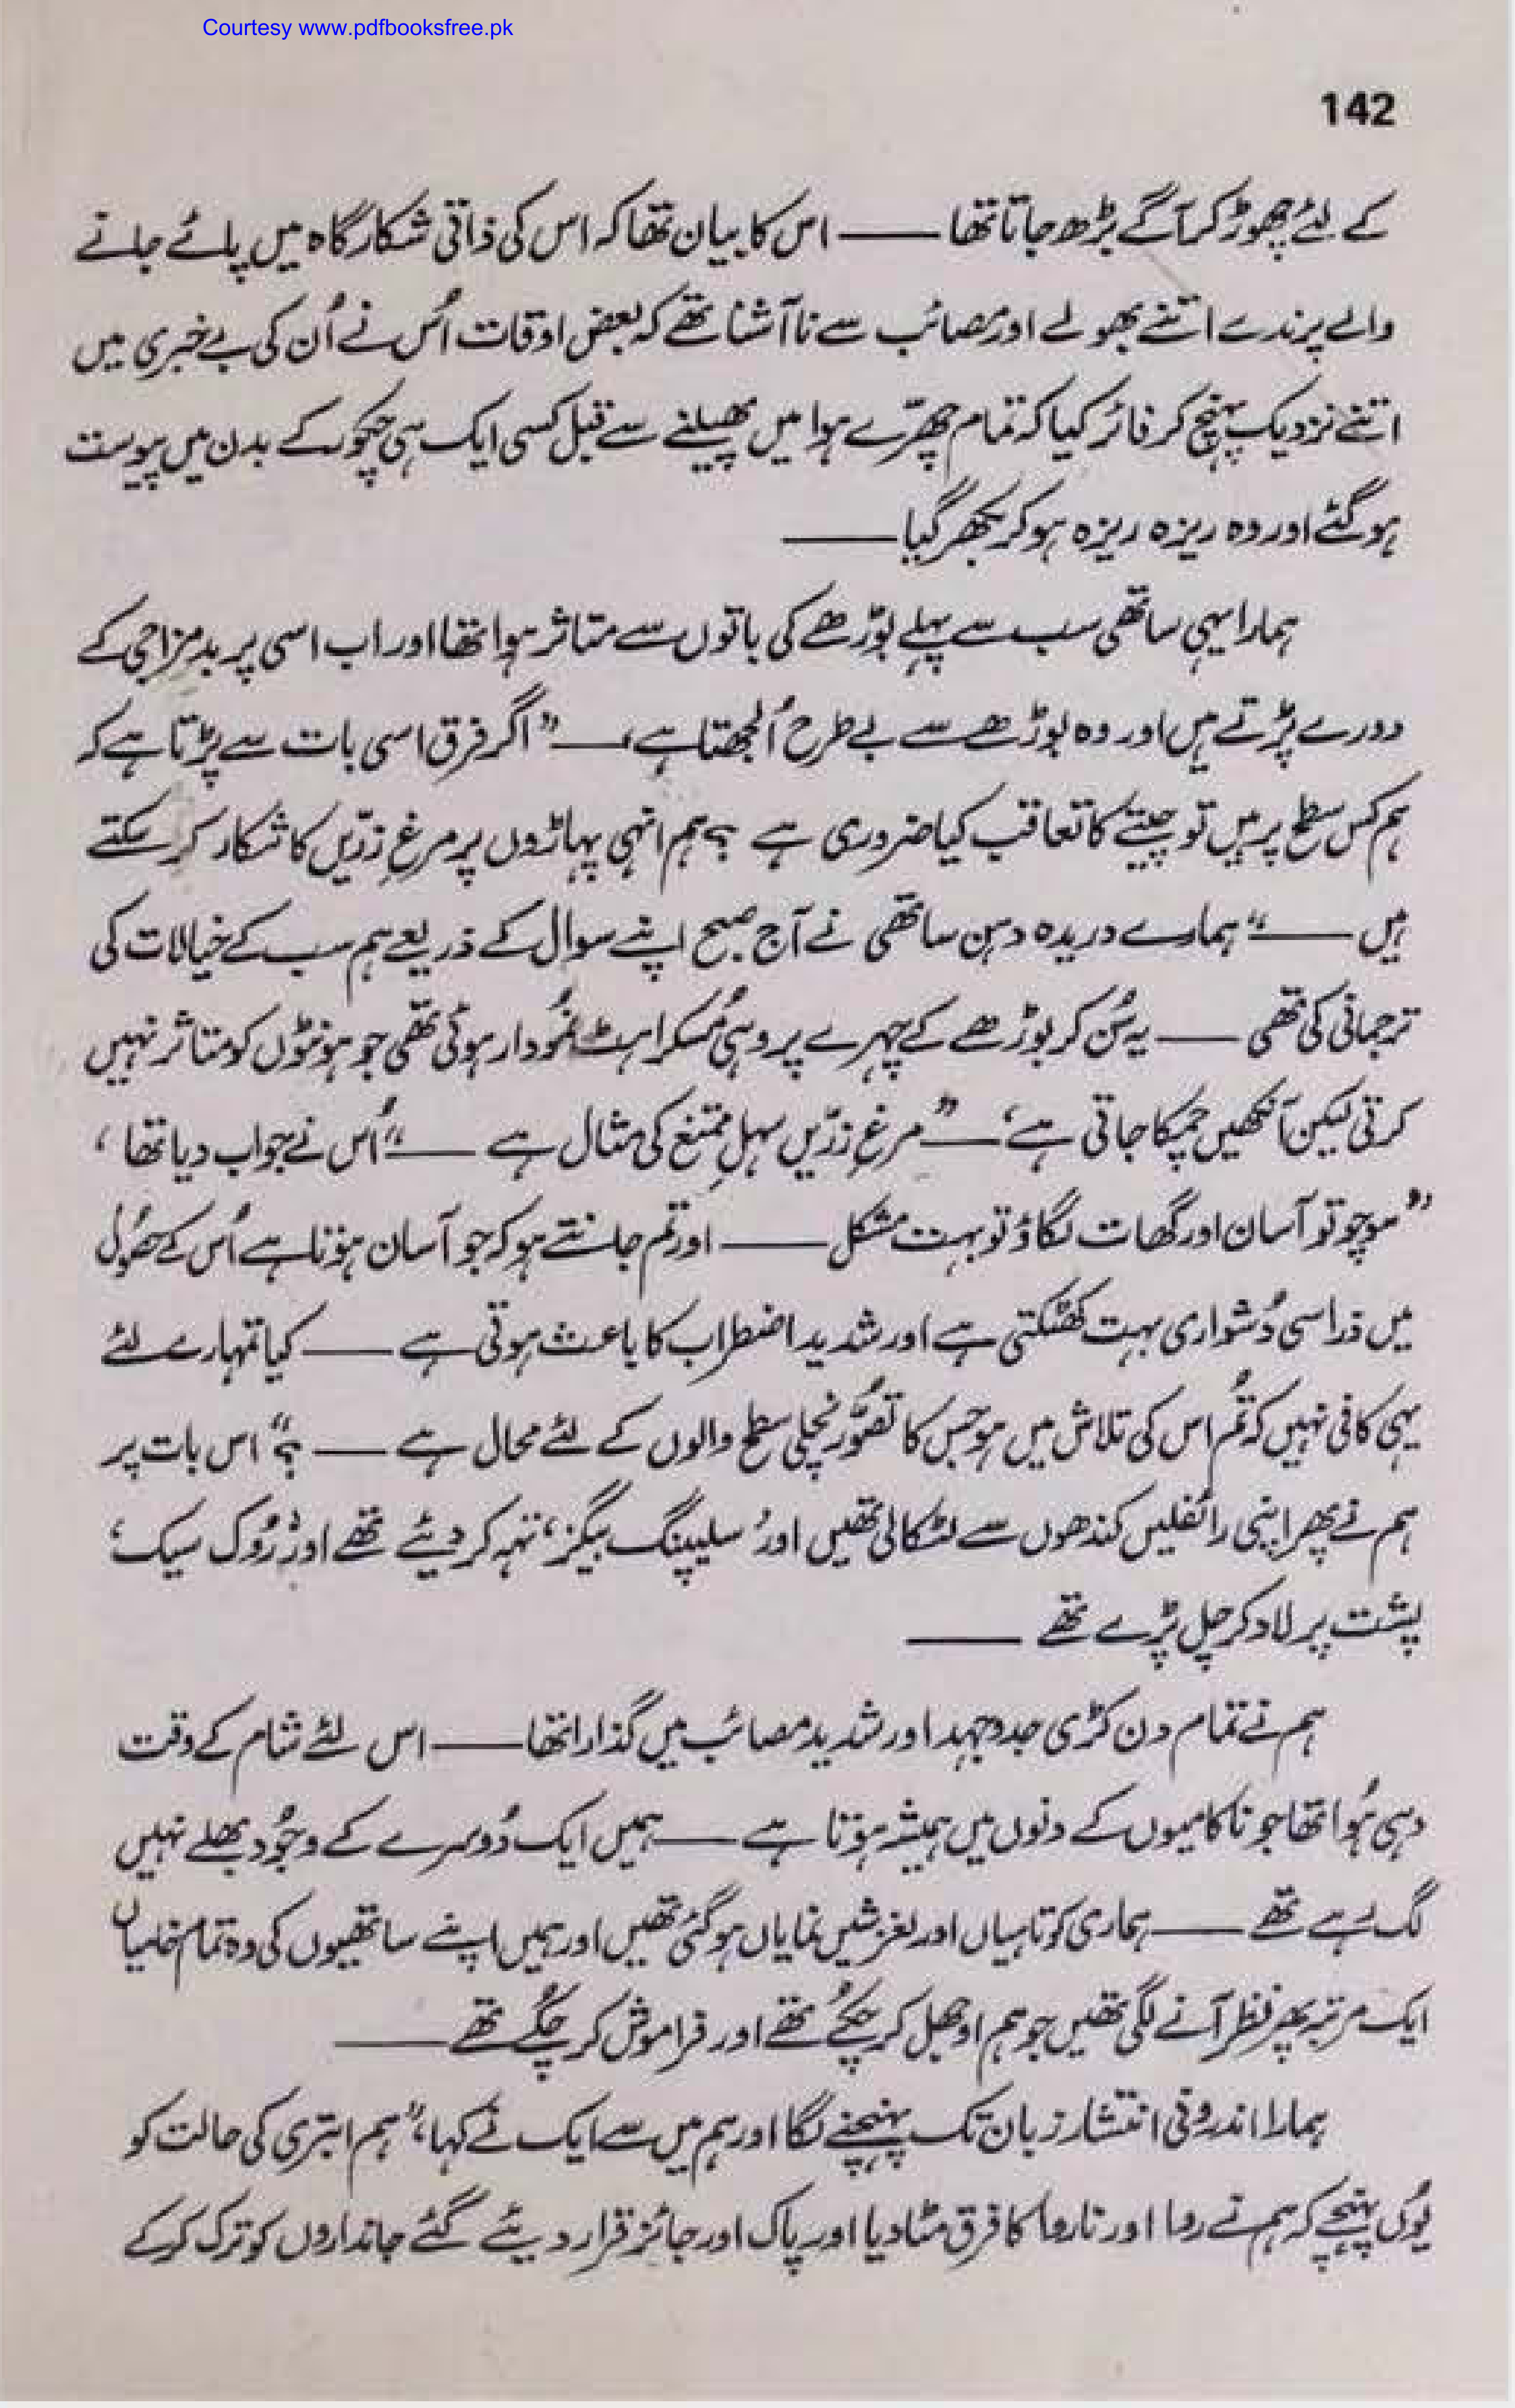 Courtesy www.pdfbooksfree.pk
142
کے لئے چھوڑ کر آگے بڑھ جاتا تھا —— اس کا بیان تھا کہ اس کی ذاتی شکار گاہ میں پائے جانے
والے پرندے اتنے بھولے اور مصائب سے ناآشنا تھے کہ بعض اوقات اُس نے اُن کی بے خبری میں
اتنے نزدیک پہنچ کر فائر کیا کہ تمام چھرّے ہوا میں پھیلنے سے قبل کسی ایک ہی چکور کے بدن میں پیوست
ہو گئے اور وہ ریزہ ریزہ ہو کر بکھر گیا ——
ہمارا یہی ساتھی سب سے پہلے بوڑھے کی باتوں سے متاثر ہوا تھا اور اب اسی پر بدمزاجی کے
دورے پڑتے ہیں اور وہ بوڑھے سے بے طرح اُلجھتا ہے، —— ”اگر فرق اسی بات سے پڑتا ہے کہ
ہم کس سطح پر ہیں تو چیتے کا تعاقب کیا ضروری ہے ؟ ہم انہی پہاڑوں پر مرغِ زرّیں کا شکار کر سکتے
ہیں ——“ ہمارے دریدہ دہن ساتھی نے آج صبح اپنے سوال کے ذریعے ہم سب کے خیالات کی
ترجمانی کی تھی —— یہ سُن کر بوڑھے کے چہرے پر وہی مُسکراہٹ نمُودار ہوئی تھی جو ہونٹوں کو متاثر نہیں
کرتی لیکن آنکھیں چمکا جاتی ہے، —— ”مرغِ زرّیں سہلِ ممتنع کی مثال ہے ——“ اُس نے جواب دیا تھا ،
”سوچو تو آسان اور گھات لگاؤ تو بہت مشکل —— اور تم جانتے ہو کہ جو آسان ہوتا ہے اُس کے حصُول
میں ذرا سی دُشواری بہت کھٹکتی ہے اور شدید اضطراب کا باعث ہوتی ہے —— کیا تمہارے لئے
یہی کافی نہیں کہ تُم اس کی تلاش میں ہو جس کا تصوُّر نچلی سطح والوں کے لئے محال ہے —— ؟“ اس بات پر
ہم نے پھر اپنی رائفلیں کندھوں سے لٹکا لی تھیں اور ’سلیپنگ بیگز‘ تہہ کر دیئے تھے اور ’رُوک سیک‘
پشت پر لاد کر چل پڑے تھے ——
ہم نے تمام دن کڑی جدوجہد اور شدید مصائب میں گذارا تھا —— اس لئے شام کے وقت
وہی ہُوا تھا جو ناکامیوں کے دنوں میں ہمیشہ ہوتا ہے —— ہمیں ایک دُوسرے کے وجُود بھلے نہیں
لگ رہے تھے —— ہماری کوتاہیاں اور لغزشیں نمایاں ہو گئی تھیں اور ہمیں اپنے ساتھیوں کی وہ تمام خامیاں
ایک مرتبہ پھر نظر آنے لگی تھیں جو ہم اوجھل کر چکُے تھے اور فراموش کر چکُے تھے ——
ہمارا اندرونی انتشار زبان تک پہنچنے لگا اور ہم میں سے ایک نے کہا، ”ہم ابتری کی حالت کو
یُوں پہنچے کہ ہم نے روا اور ناروا کا فرق مٹا دیا اور پاک اور جائز قرار دیئے گئے جانداروں کو ترک کر کے